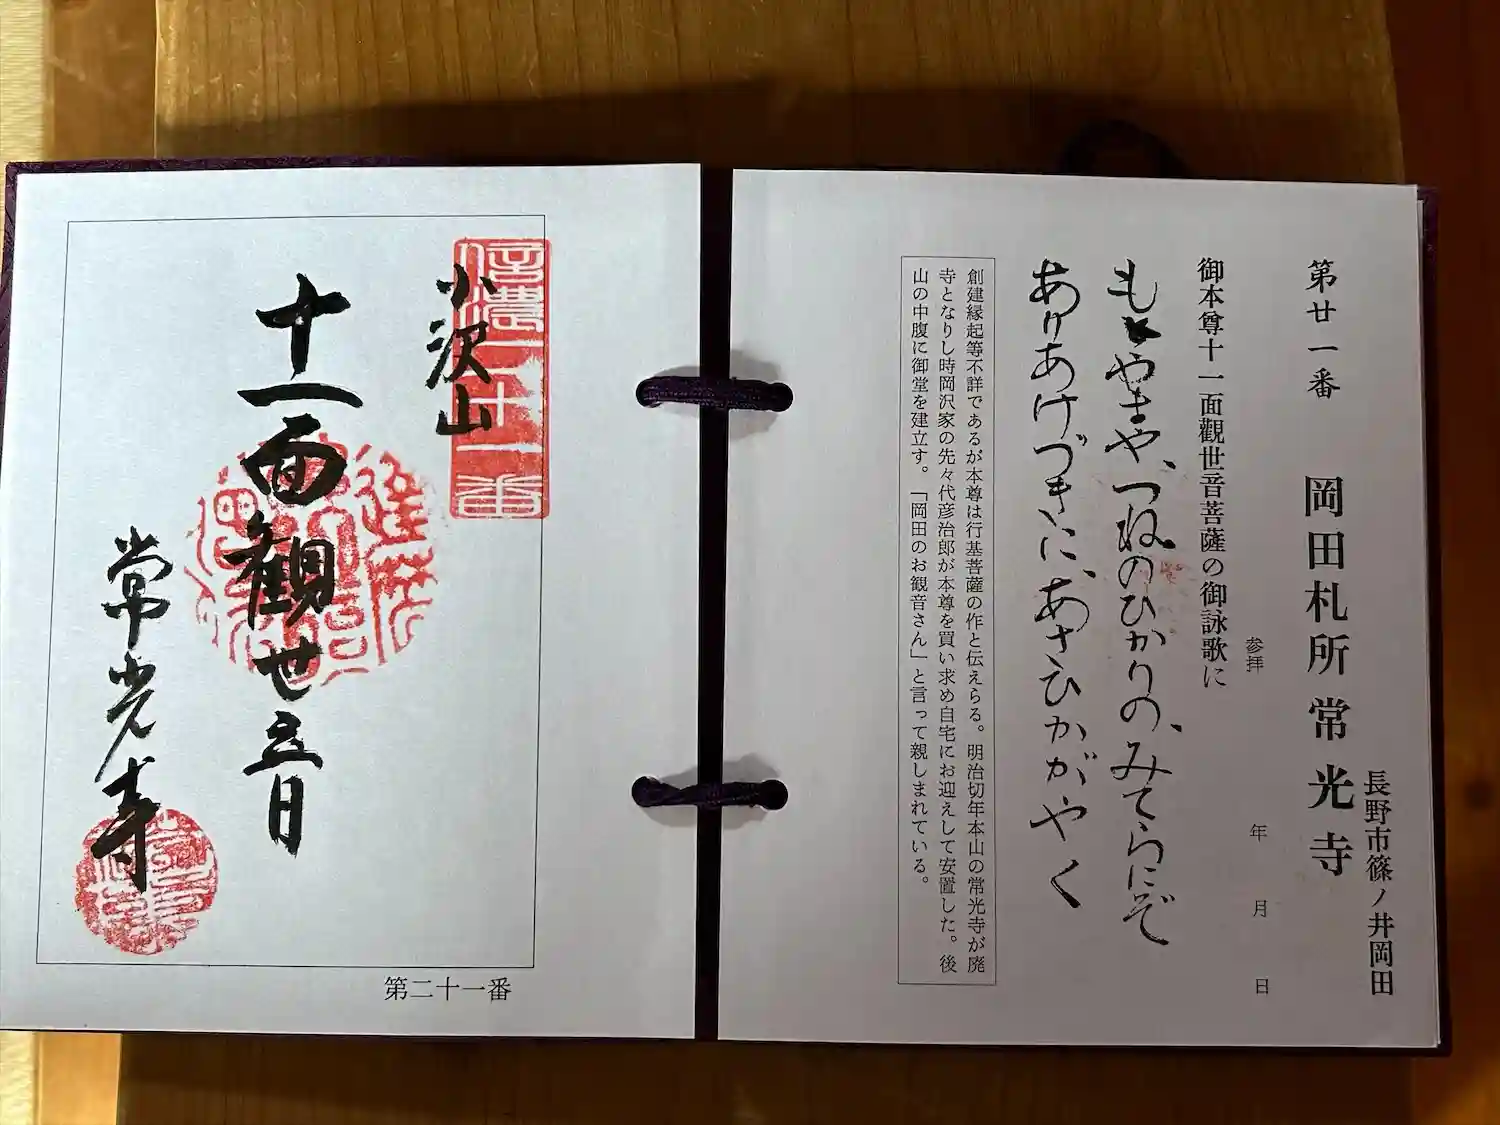 長野市篠ノ井岡田
第廿一番 岡田札所常光寺
参拝 年 月 日
御本尊十一面觀世音菩薩の御詠歌に
もとやまや、つねのひかりの、みてらにぞ
ありあけづきに、あさひかがやく
創建縁起等不詳であるが本尊は行基菩薩の作と伝えらる。明治切年本山の常光寺が廃
寺となりし時岡沢家の先々代彦治郎が本尊を買い求め自宅にお迎えして安置した。後
山の中腹に御堂を建立す。「岡田のお観音さん」と言って親しまれている。
信濃二十一番
小沢山
十一面觀世音
常光寺
第二十一番